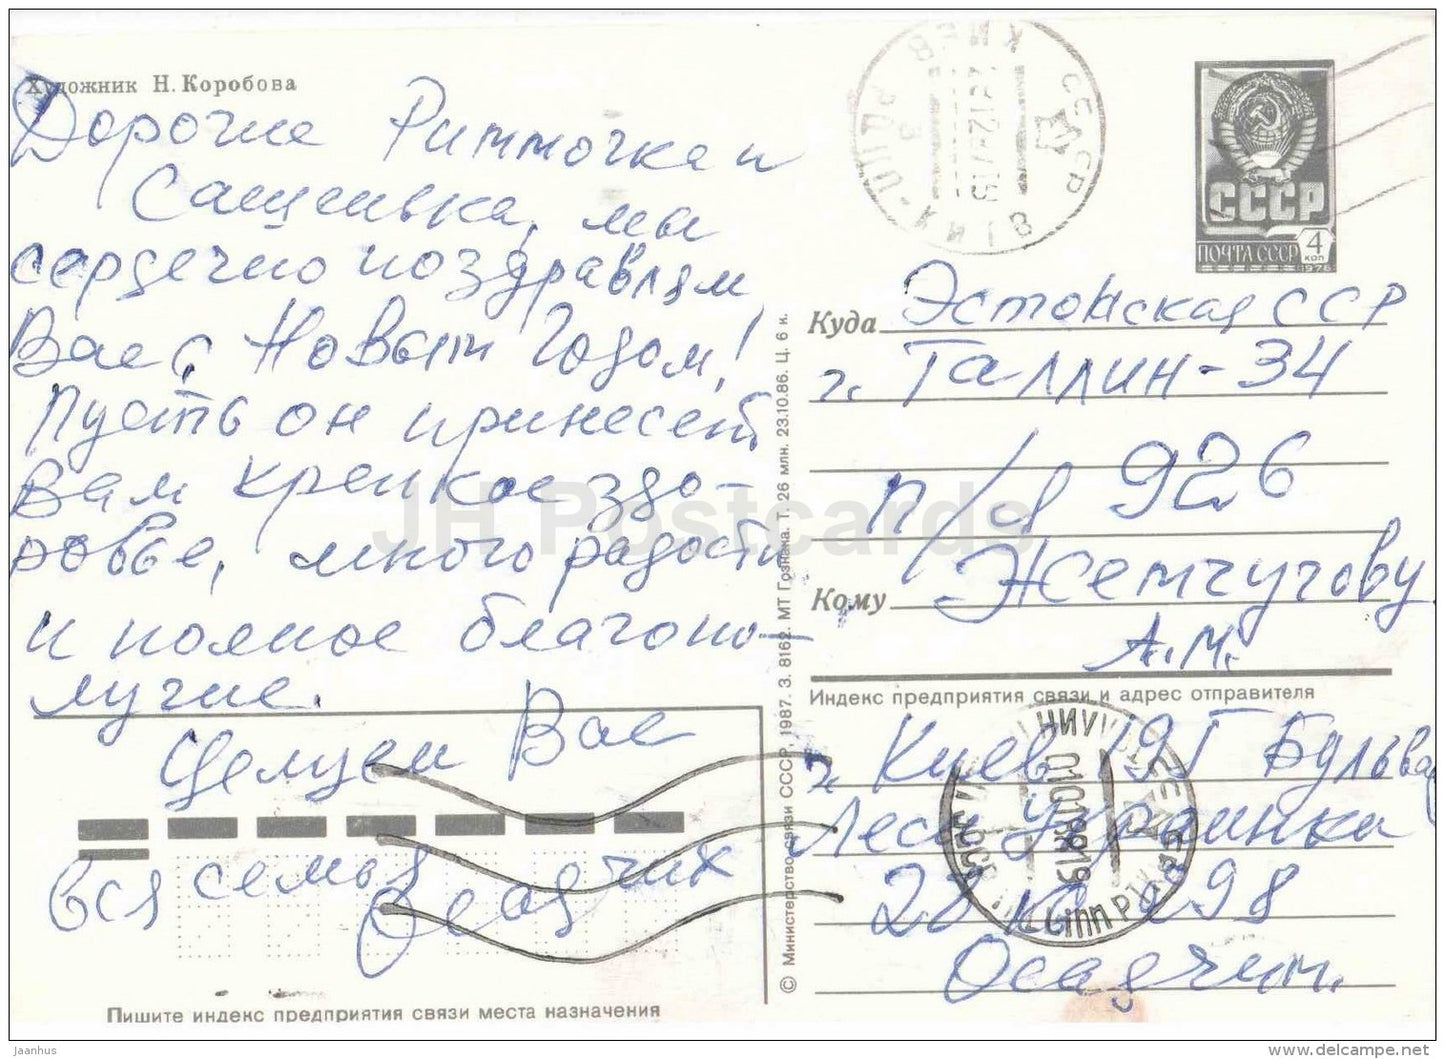 Художник Н. Коробова
Дорогие Риммочка и
Сашенька, мы
сердечно поздравляем
Вас с Новым Годом!
Пусть он принесет
Вам крепкое здо-
ровье, много радости
и полное благопо-
лучие.
Целуем Вас
вся семья Осадчих
Пишите индекс предприятия связи места назначения
© Министерство связи СССР, 1987. З. 8162. МТ Гознака. Т. 26 млн. 23.10.86. Ц. 6 к.
СССР
ПОЧТА СССР 4 коп
1976
Куда Эстонская ССР
г. Таллин-34
п/я 926
Кому Жемчугову
А.М.
Индекс предприятия связи и адрес отправителя
г. Киев 195 Бульвар
Леси Украинки
28 кв 298
Осадчих.
JH Postcards
jaanhus
delcampe.net